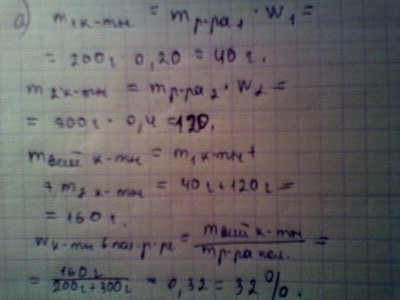 а) m₁ к-ты = m р-ра₁ · W₁ =
= 200г · 0,20 = 40 г.
m₂ к-ты = m р-ра₂ · W₂ =
= 300г · 0,4 = 120.
m всій к-ты = m₁ к-ты +
+ m₂ к-ты = 40г + 120г =
= 160г.
W к-ты в пол. р-ре = m всій к-ты / m р-ра пол. =
= 160г / 200г + 300г = 0,32 = 32%.